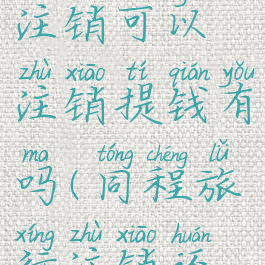 注销可以
zhù xiāo tí qián yǒu
注销提钱有
ma tóng chéng lǚ
吗(同程旅
xíng zhù xiāo huán
行注销还